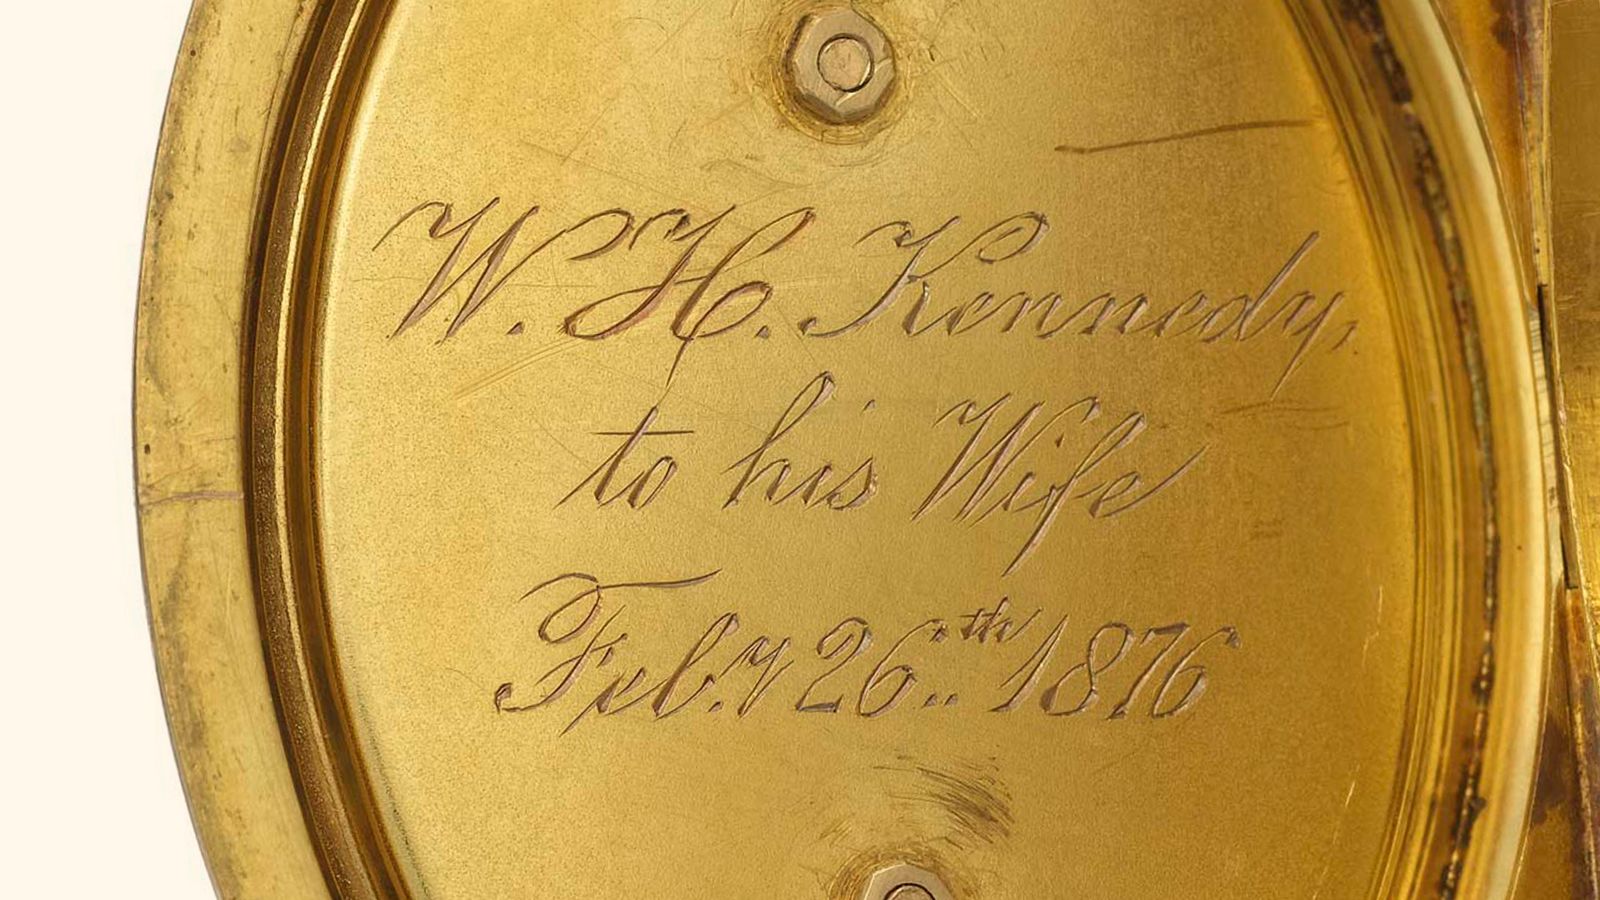 W. H. Kennedy,
to his Wife
Feb.y 26.th 1876